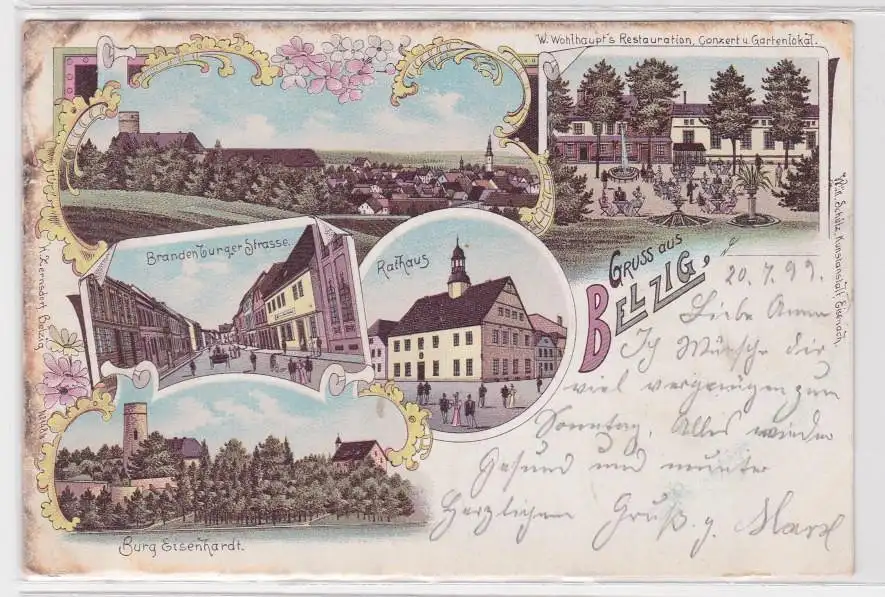 W. Wohlhaupt's Restauration, Conzert u. Gartenlokal.
Brandenburger Strasse.
Rathaus
Burg Eisenhardt.
GRUSS aus
BELZIG,
H. Zernsdorf, Belzig
Wilh. Schütz, Kunstanstalt, Eisenach.
20.7.99.
Liebe Anna
Ich Wünsche dir
viel vergnügen zum
Sonntag, Alles wieder
Gesund und munter
Herzlichen Gruß. g.